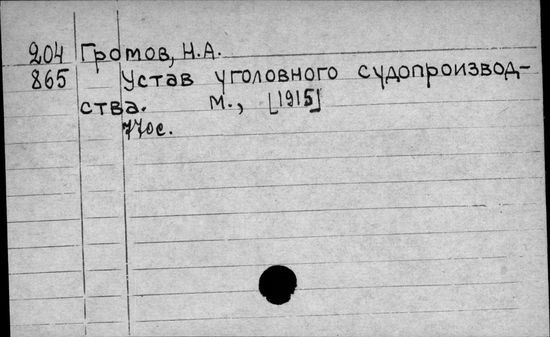 204 Громов, Н.А.
865 Устав уголовного судопроизвод-
ства. М., [1915]
770с.